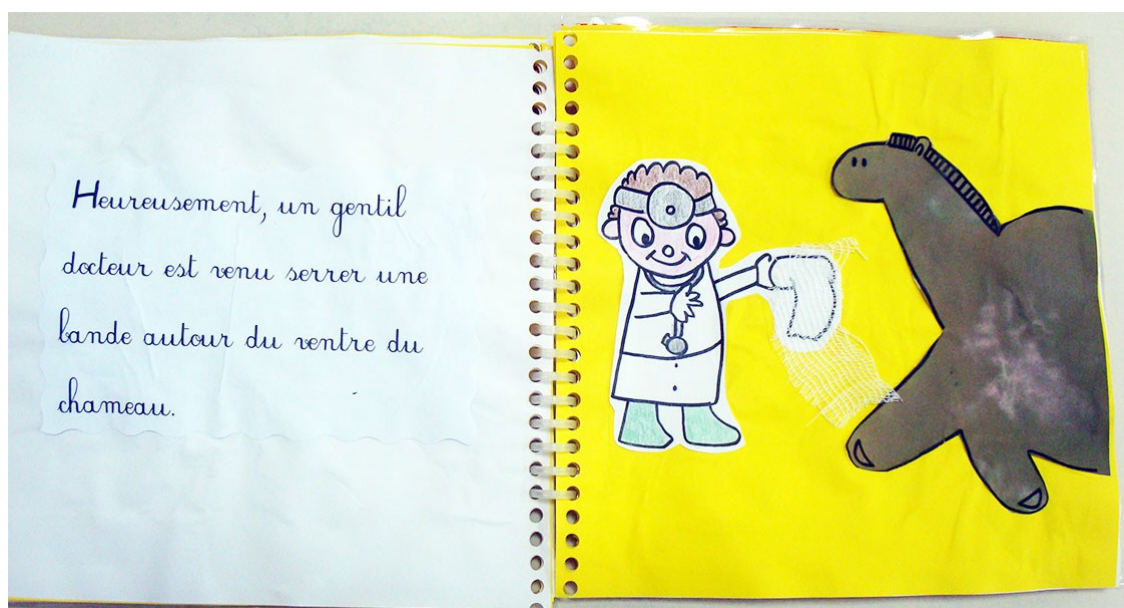 Heureusement, un gentil
docteur est venu serrer une
bande autour du ventre du
chameau.